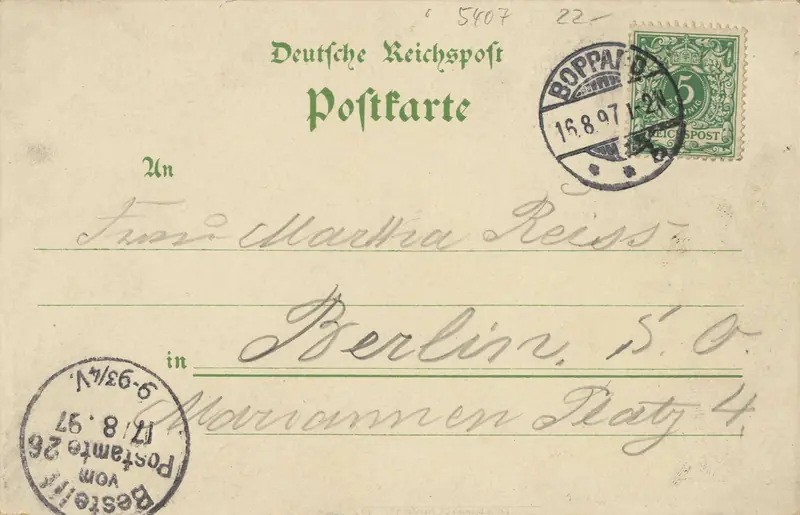 5407 22.-
Deutsche Reichspost
Postkarte
BOPPARD
16.8.97 1-2N
b
5
REICHSPOST
An
Frau Martha Reiss
in Berlin, S. O.
Mariannen Platz 4.
Bestellt
vom
Postamte 26
17/8.97
9-93/4V.